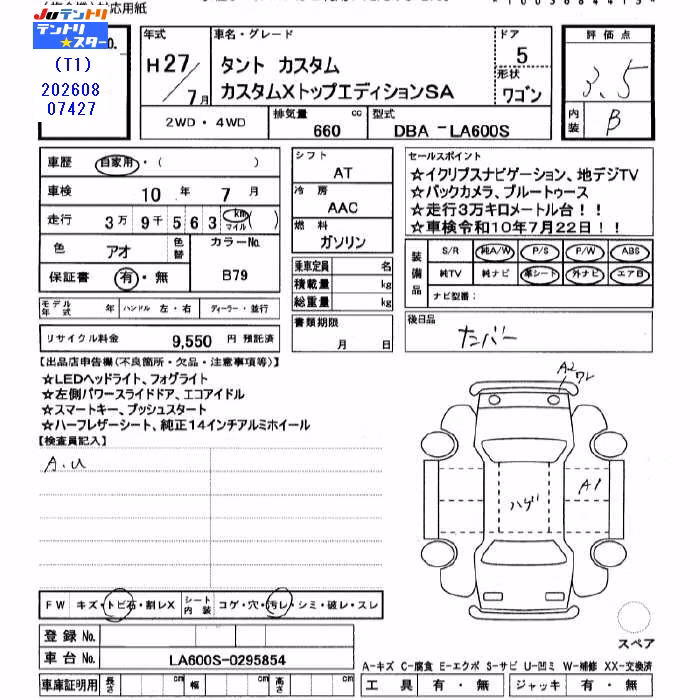 対応用紙
JUテントリ
テントリ
★スター
(T1)
202608
07427
年式 H27/7月
車名・グレード
タント カスタム
カスタムXトップエディションSA
ドア 5
形状 ワゴン
評価点 3.5
内装 B
2WD・4WD
排気量 660 cc
型式 DBA -LA600S
車歴 自家用・( )
車検 10年 7月
走行 3万9千563 km マイル ( )
色 アオ 色替
カラーNo. B79
保証書 有・無
シフト AT
冷房 AAC
燃料 ガソリン
乗車定員 名
積載量 kg
総重量 kg
書類期限 月 日
セールスポイント
☆イクリプスナビゲーション、地デジTV
☆バックカメラ、ブルートゥース
☆走行3万キロメートル台!!
☆車検令和10年7月22日!!
装備品 S/R 純A/W P/S P/W ABS
純TV 純ナビ 革シート 外ナビ エアB
ナビ型番:
モデル年式 年 ハンドル 左・右 ディーラー・並行
リサイクル料金 9,550 円 預託済
後日品 ナンバー
【出品店申告欄(不良箇所・欠品・注意事項等)】
☆LEDヘッドライト、フォグライト
☆左側パワースライドドア、エコアイドル
☆スマートキー、プッシュスタート
☆ハーフレザーシート、純正14インチアルミホイール
【検査員記入】
A.U
A2
ワレ
A1
ハゲ
FW キズ・トビ石・割レX シート内装 コゲ・穴・汚レ・シミ・破レ・スレ
登録No.
車台No. LA600S-0295854
車庫証明用 長さ cm 幅 cm 高さ cm
スペア
A-キズ C-腐食 E-エクボ S-サビ U-凹ミ W-補修 XX-交換済
工具 有・無 ジャッキ 有・無